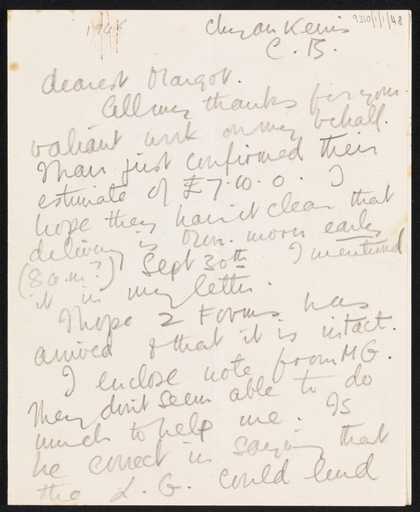 1948
9310/1/1/48
Chy an Kerris
C. B.
dearest Margot.
All my thanks for your
valiant work on my behalf.
Mans just confirmed their
estimate of £7.10.0. I
hope they have it clear that
delivery is Thurs. morn early
(8 a.m?) Sept 30th I mentioned
it in my letter.
I hope 2 Forms has
arrived & that it is intact.
I enclose note from MG.
They don't seem able to do
much to help me. Is
he correct in saying that
the L. G. could lend